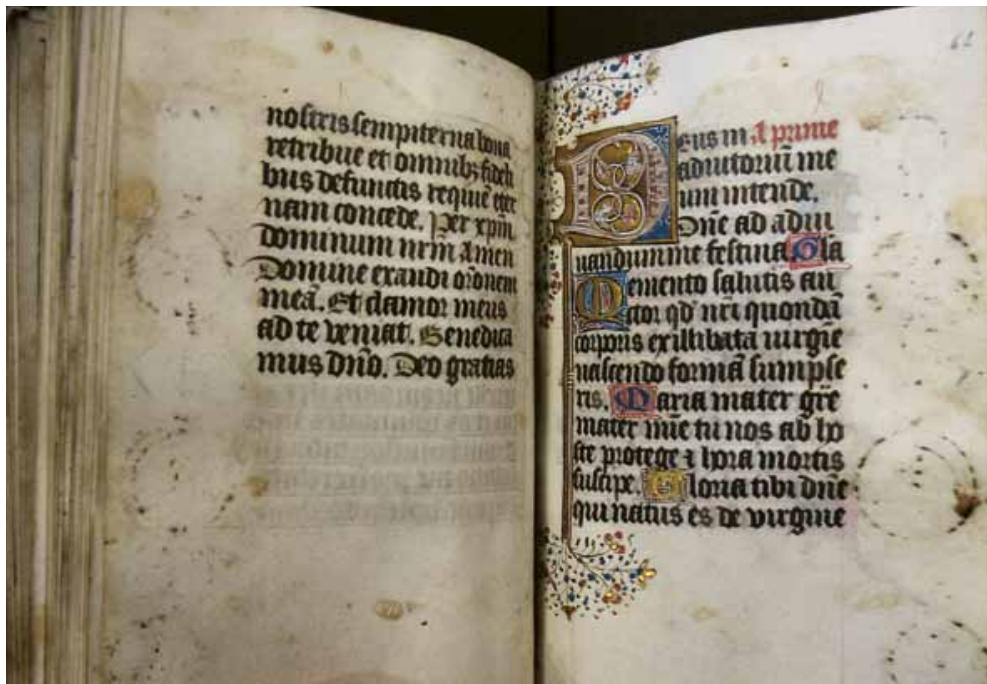 nostris sempiterna bona
retribue et omnibȝ fideli
bus defunctis requiē eter
nam concede. Per xp̄m
dominum nr̄m Amen
Domine exaudi or̄onem
meā. Et clamor meus
ad te veniat. Benedica
mus dn̄o. Deo gratias
62
Deus in A prime
adiutoriū me
um intende.
Dn̄e ad adiu
uandum me festina. Gla
Memento salutis au
ctor qd̄ nr̄i quondā
corporis ex illibata uirgīe
nascendo formā sumpse
ris. Maria mater gr̄e
mater mīe tu nos ab ho
ste protege ⁊ hora mortis
suscipe. Gloria tibi dn̄e
qui natus es de virgine